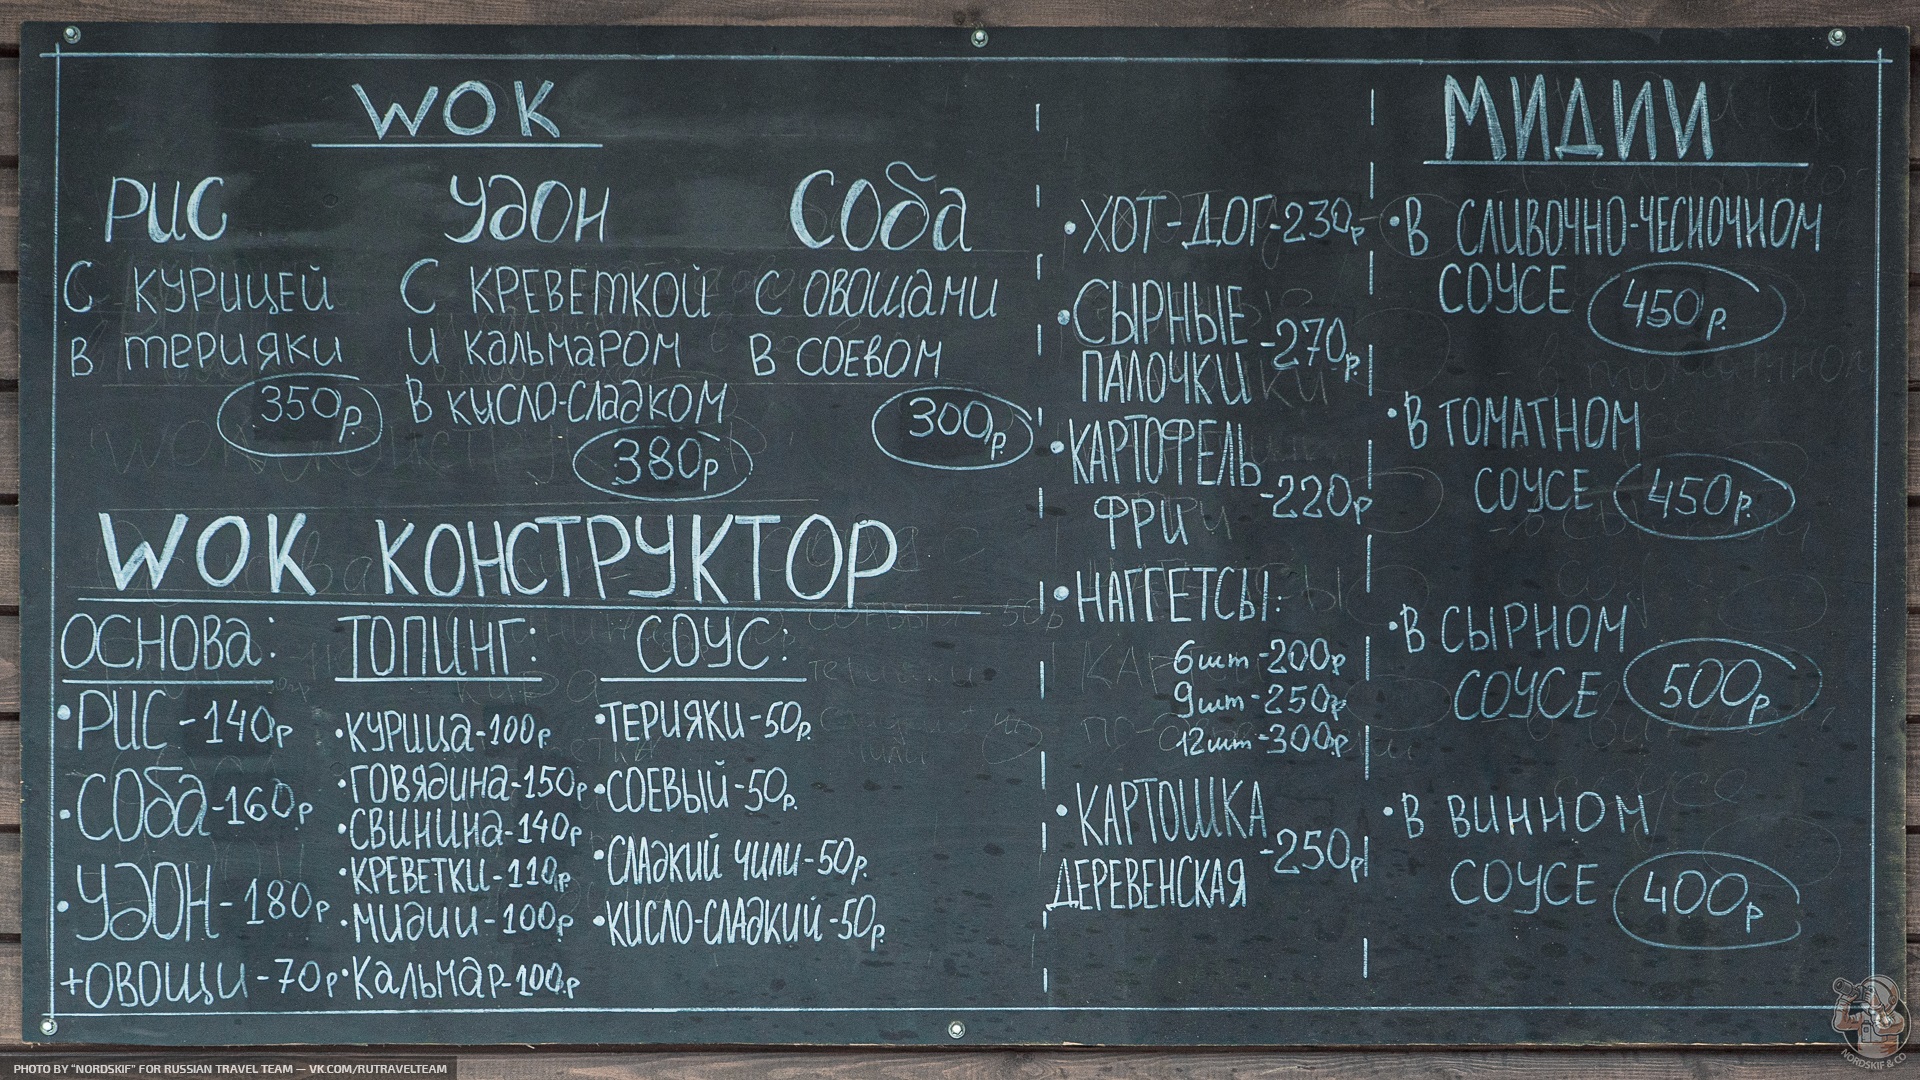 WOK
РИС
С КУРИЦЕЙ
В ТЕРИЯКИ
350р.
УДОН
С КРЕВЕТКОЙ
И КАЛЬМАРОМ
В КИСЛО-СЛАДКОМ
380р
СОБА
С ОВОЩАМИ
В СОЕВОМ
300р.
WOK КОНСТРУКТОР
ОСНОВА:
• РИС - 140р
• СОБА - 160р
• УДОН - 180р
+ ОВОЩИ - 70р
ТОПИНГ:
• КУРИЦА - 100р.
• ГОВЯДИНА - 150р
• СВИНИНА - 140р
• КРЕВЕТКИ - 110р.
• МИДИИ - 100р.
• КАЛЬМАР - 100р
СОУС:
• ТЕРИЯКИ - 50р.
• СОЕВЫЙ - 50р.
• СЛАДКИЙ ЧИЛИ - 50р.
• КИСЛО-СЛАДКИЙ - 50р.
• ХОТ-ДОГ - 230р
• СЫРНЫЕ
ПАЛОЧКИ - 270р.
• КАРТОФЕЛЬ
ФРИ - 220р
• НАГГЕТСЫ:
6шт - 200р
9шт - 250р
12шт - 300р
• КАРТОШКА
ДЕРЕВЕНСКАЯ - 250р
МИДИИ
• В СЛИВОЧНО-ЧЕСНОЧНОМ
СОУСЕ 450р.
• В ТОМАТНОМ
СОУСЕ 450р.
• В СЫРНОМ
СОУСЕ 500р
• В ВИННОМ
СОУСЕ 400р
PHOTO BY "NORDSKIF" FOR RUSSIAN TRAVEL TEAM — VK.COM/RUTRAVELTEAM
NORDSKIF & CO